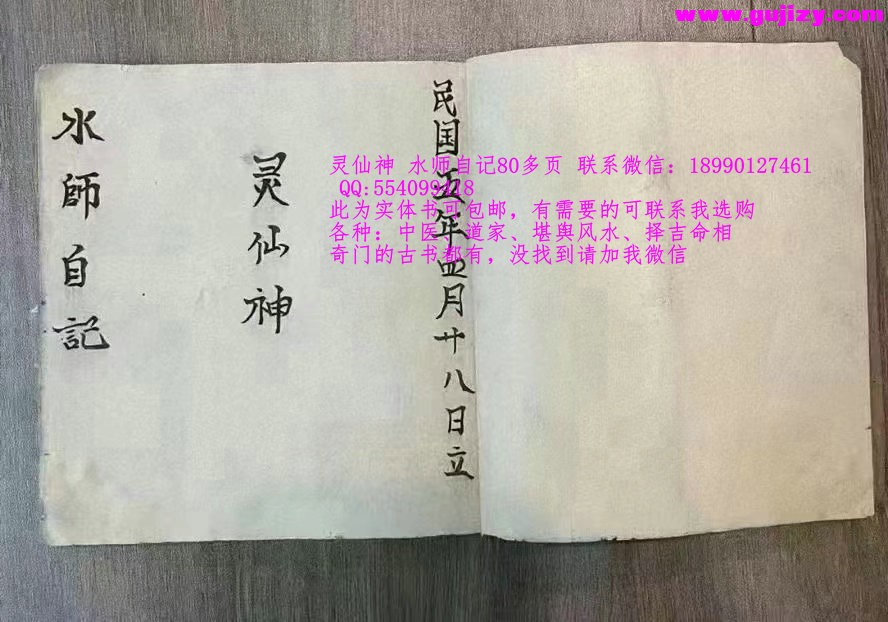 www.gujizy.com
灵仙神 水师自记80多页 联系微信：18990127461
QQ:554099418
此为实体书可包邮，有需要的可联系我选购
各种：中医、道家、堪舆风水、择吉命相
奇门的古书都有，没找到请加我微信
民国五年四月廿八日立
灵仙神
水師自記